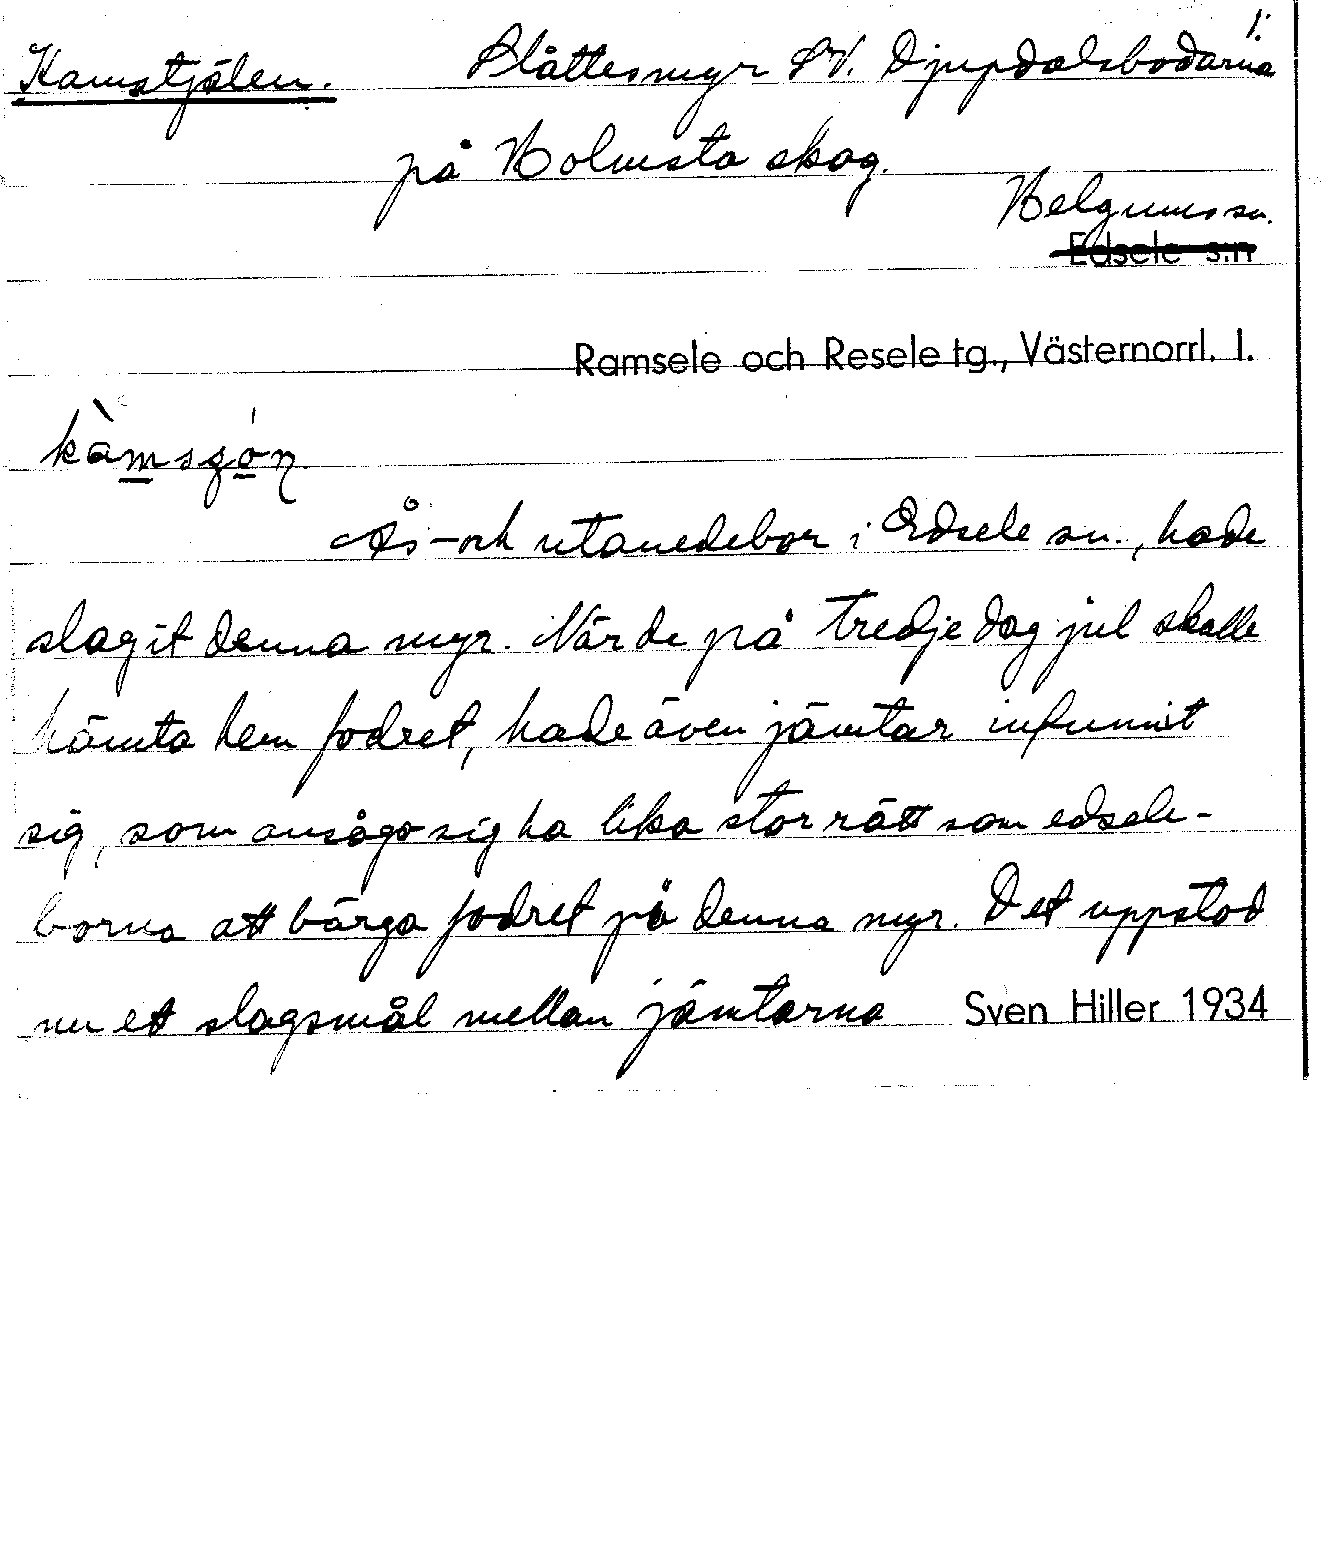 1.
Kamstjälen. Slåttesmyr SV. Djupdalsbodarna
på Holmsta skog.
Helgums sn.
Edsele s:n
Ramsele och Resele tg., Västernorrl. l.
Ås- och utanedebor i Edsele sn., hade
slagit denna myr. När de på tredje dag jul skulle
hämta hem fodret, hade även jämtar infunnit
sig, som ansågo sig ha lika stor rätt som edsele-
borna att bärga fodret på denna myr. Det uppstod
nu ett slagsmål mellan jämtarna Sven Hiller 1934